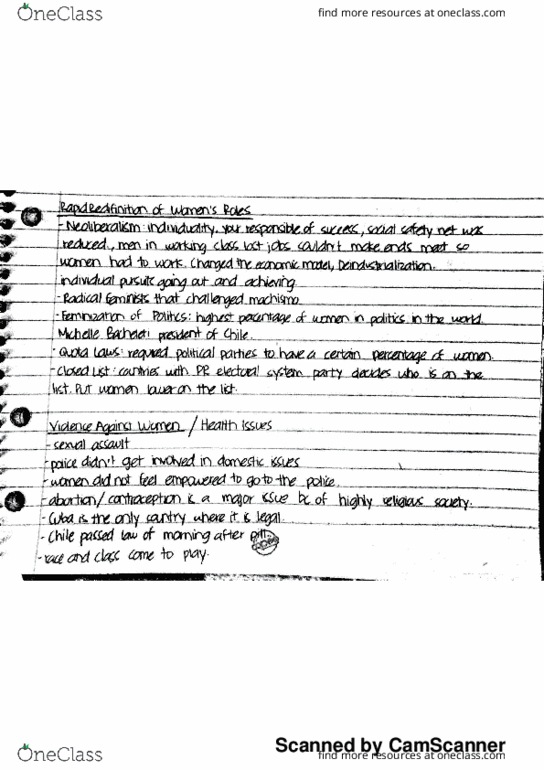 OneClass
find more resources at oneclass.com
Rapid Redfinition of Women's Roles
- Neoliberalism: individuality, your responsible of success, social safety net was
reduced, men in working class lost jobs. couldn't make ends meet so
women had to work. Changed the economic model, Deindustrialization.
individual pursuits going out and achieving
- Radical feminists that challenged machismo
- Feminization of Politics: highest percentage of women in politics in the world.
Michelle Bachelet president of Chile.
- Quota Laws: required political parties to have a certain percentage of women.
- Closed List: countries with PR electoral system party decides who is on the
list. Put women lower on the list.
Violence Against Women / Health Issues
- sexual assault
- police didn't get involved in domestic issues
- women did not feel empowered to go to the police.
- abortion/contraception is a major issue bc of highly religious society.
- Cuba is the only country where it is legal.
- Chile passed law of morning after pill.
- race and class come to play.
Scanned by CamScanner
OneClass
find more resources at oneclass.com